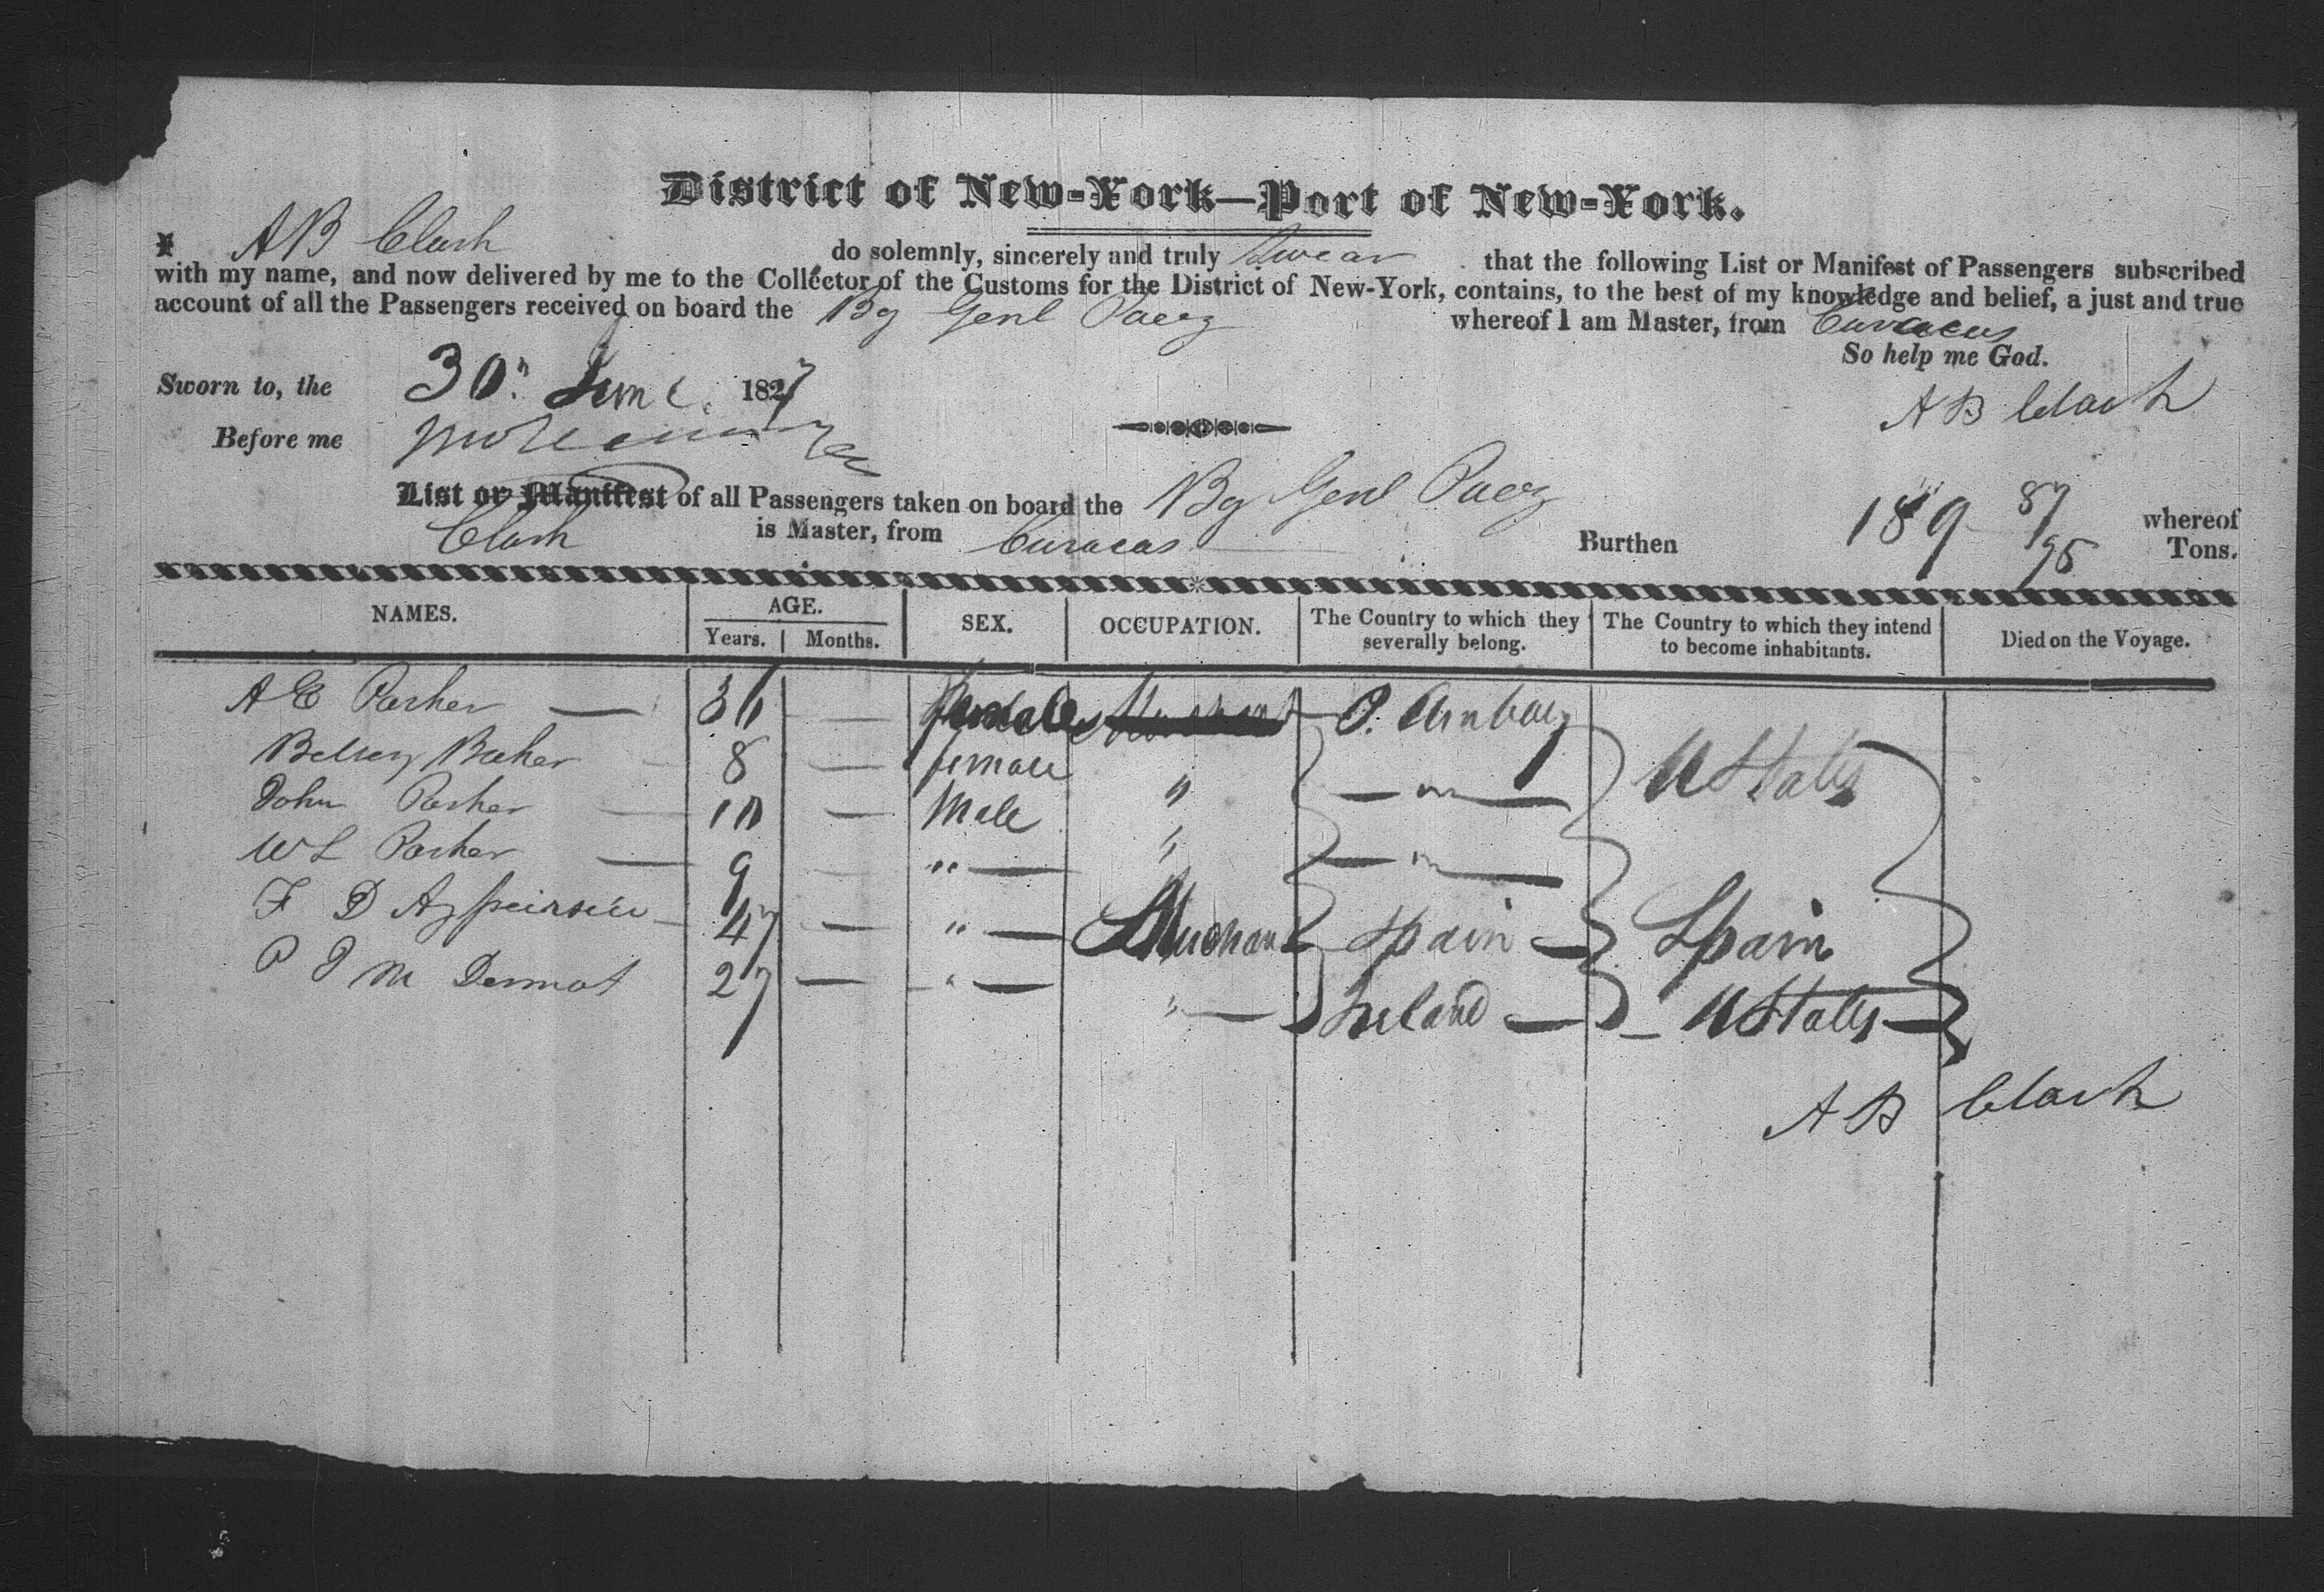 District of New-York—Port of New-York.
I A B Clark do solemnly, sincerely and truly Swear that the following List or Manifest of Passengers subscribed
with my name, and now delivered by me to the Collector of the Customs for the District of New-York, contains, to the best of my knowledge and belief, a just and true
account of all the Passengers received on board the Bg Genl Paez whereof I am Master, from Curacas
So help me God.
Sworn to, the 30 June 1827
A B Clark
Before me
List or Manifest of all Passengers taken on board the Bg Genl Paez whereof
Clark is Master, from Curacas Burthen 189 87/95 Tons.
NAMES. AGE. SEX. OCCUPATION. The Country to which they severally belong. The Country to which they intend to become inhabitants. Died on the Voyage.
Years. Months.
A E Parker — 36 — female P. Amboy
Betsey Parker 8 — female " U States
John Parker — 10 — Male " — " —
W L Parker — 9 — " — " — " —
F D 47 — " — Merchant Spain — Spain
P J M Dermot 27 — " — " — Ireland — U States —
A B Clark